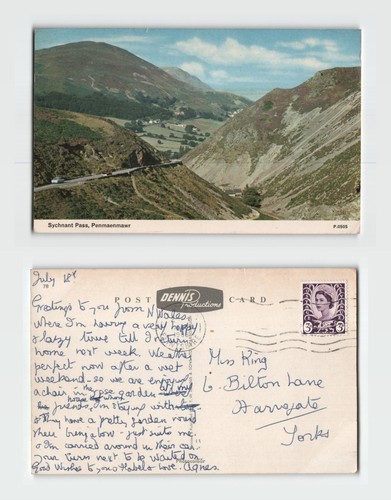 Sychnant Pass, Penmaenmawr
P.0808
July 18th
POST CARD
DENNIS
Productions
Greetings to you from N Wales
where I'm having a very happy
& lazy time till I return
home next week. Weather
perfect now after a wet
weekend - so we are enjoying
a chair in the garden
friends, I'm staying with
& they have a pretty garden round
their bungalow - just suits me
& I'm carried around in their car.
Your turn next to be waited on
Good Wishes to you & Mabel & love. Agnes.
Miss King
6. Bilton Lane
Harrogate
Yorks
3D